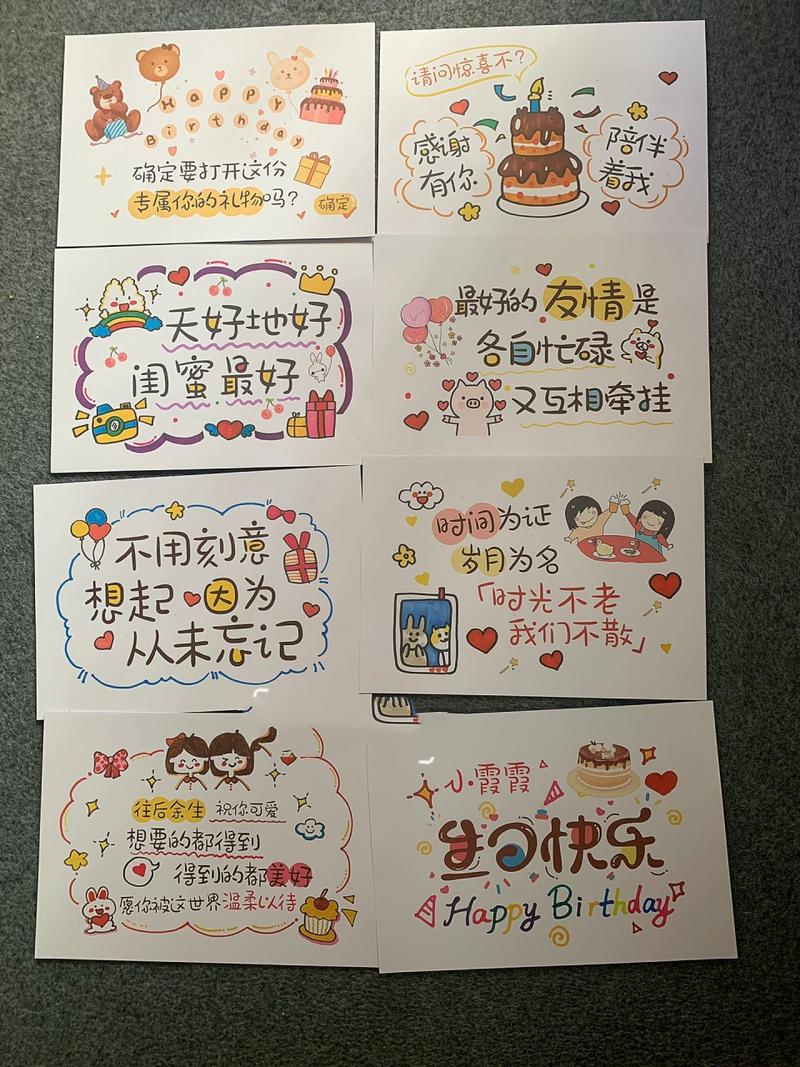 Happy
Birthday
确定要打开这份
专属你的礼物吗?
确定
请问惊喜不?
感谢
有你
陪伴
着我
天好地好
闺蜜最好
最好的友情是
各自忙碌
又互相牵挂
不用刻意
想起因为
从未忘记
时间为证
岁月为名
「时光不老
我们不散」
往后余生 祝你可爱
想要的都得到
得到的都美好
愿你被这世界温柔以待
小霞霞
生日快乐
Happy Birthday